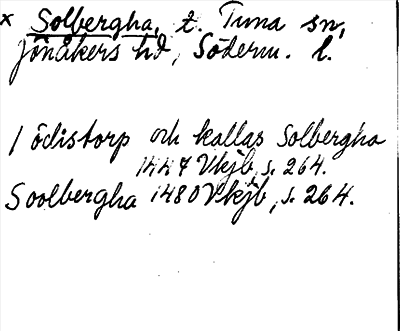 x Solbergha, t. Tuna sn,
Jönåkers hd, Söderm. l.
I ödistorp och kallas Solbergha
1447 Vkjb, s. 264.
Soolbergha 1480 Vkjb, s. 264.